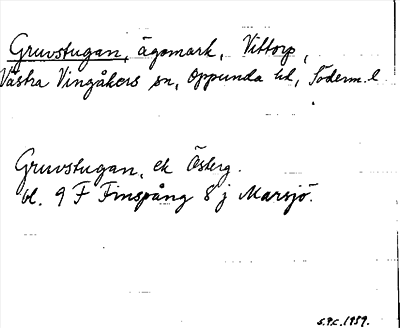 Gruvstugan, ägomark, Vittorp,
Västra Vingåkers sn, Oppunda hd, Söderm. l
Gruvstugan, ek Österg.
bl. 9 F Finspång 8 j Marsjö.
1959.